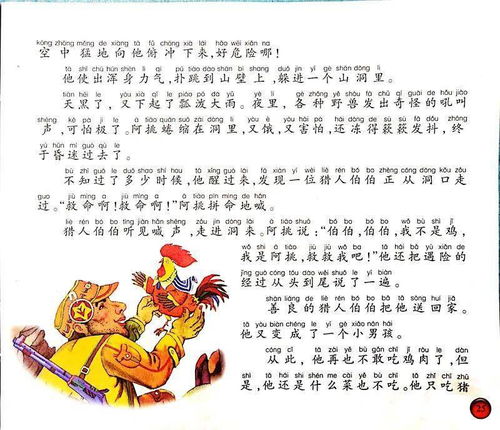 kōng zhōng měng de xiàng tā fǔ chōng xià lái hǎo wēi xiǎn na
空中猛地向他俯冲下来,好危险哪!
tā shǐ chū hún shēn lì qì pū tiào dào shān bì shang duǒ jìn yí gè shān dòng lǐ
他使出浑身力气,扑跳到山壁上,躲进一个山洞里。
tiān hēi le yòu xià qǐ le piáo pō dà yǔ yè lǐ gè zhǒng yě shòu fā chū qí guài de hǒu jiào
天黑了,又下起了瓢泼大雨。夜里,各种野兽发出奇怪的吼叫
shēng kě pà jí le ā tiāo quán suō zài dòng lǐ yòu è yòu hài pà hái dòng de sù sù fā dǒu zhōng
声,可怕极了。阿挑蜷缩在洞里,又饿,又害怕,还冻得簌簌发抖,终
yú hūn mí guò qù le
于昏迷过去了。
bù zhī guò le duō shao shí hou tā xǐng guò lái fā xiàn yí wèi liè rén bó bo zhèng cóng dòng kǒu zǒu
不知过了多少时候,他醒过来,发现一位猎人伯伯正从洞口走
guò jiù mìng a jiù mìng a ā tiāo pīn mìng de hǎn
过。“救命啊!救命啊!”阿挑拼命地喊。
liè rén bó bo tīng jiàn hǎn shēng zǒu jìn dòng lái ā tiāo shuō bó bo bó bo wǒ bú shì jī
猎人伯伯听见喊声,走进洞来。阿挑说:“伯伯,伯伯,我不是鸡,
wǒ shì ā tiāo jiù jiù wǒ ba tā hái bǎ yù xiǎn de
我是阿挑,救救我吧!”他还把遇险的
jīng guò cóng tóu dào wěi shuō le yí biàn
经过从头到尾说了一遍。
shàn liáng de liè rén bó bo bǎ tā sòng huí jiā
善良的猎人伯伯把他送回家。
tā yòu biàn chéng le yí gè xiǎo nán hái
他又变成了一个小男孩。
cóng cǐ tā zài yě bù gǎn chī jī ròu le dàn
从此,他再也不敢吃鸡肉了,但
shì tā hái shi shén me cài yě bù chī tā zhǐ chī zhū
是,他还是什么菜也不吃。他只吃猪